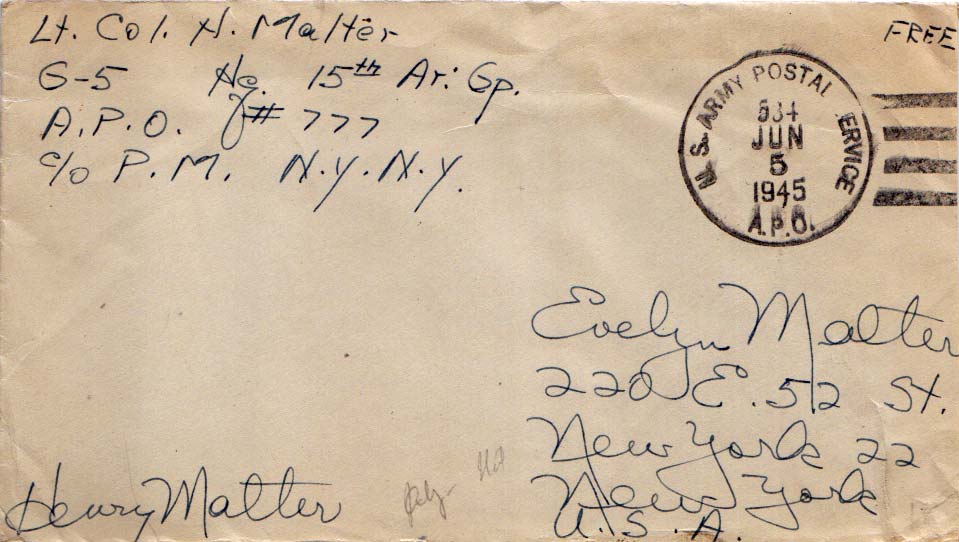 Lt. Col. H. Malter
G-5 Hq. 15th Ar: Gp.
A.P.O. # 777
c/o P.M. N.Y. N.Y.
FREE
U.S. ARMY POSTAL SERVICE
534
JUN
5
1945
A.P.O.
Evelyn Malter
220 E. 52 St.
New York 22
New York
U.S.A.
Henry Malter